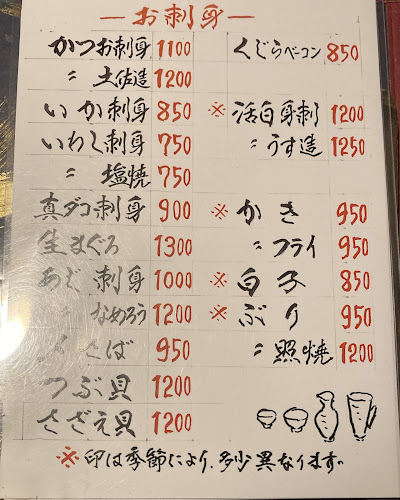 ーお刺身ー
かつお刺身 1100
〃 土佐造 1200
いか刺身 850
いわし刺身 750
〃 塩焼 750
真ダコ刺身 900
生まぐろ 1300
あじ刺身 1000
〃 なめろう 1200
さば 950
つぶ貝 1200
さざえ貝 1200
くじらベーコン 850
※ 活白身刺 1200
〃 うす造 1250
※ かき 950
※ 〃 フライ 950
※ 白子 850
※ ぶり 950
〃 照焼 1200
※印は季節により、多少異なります。